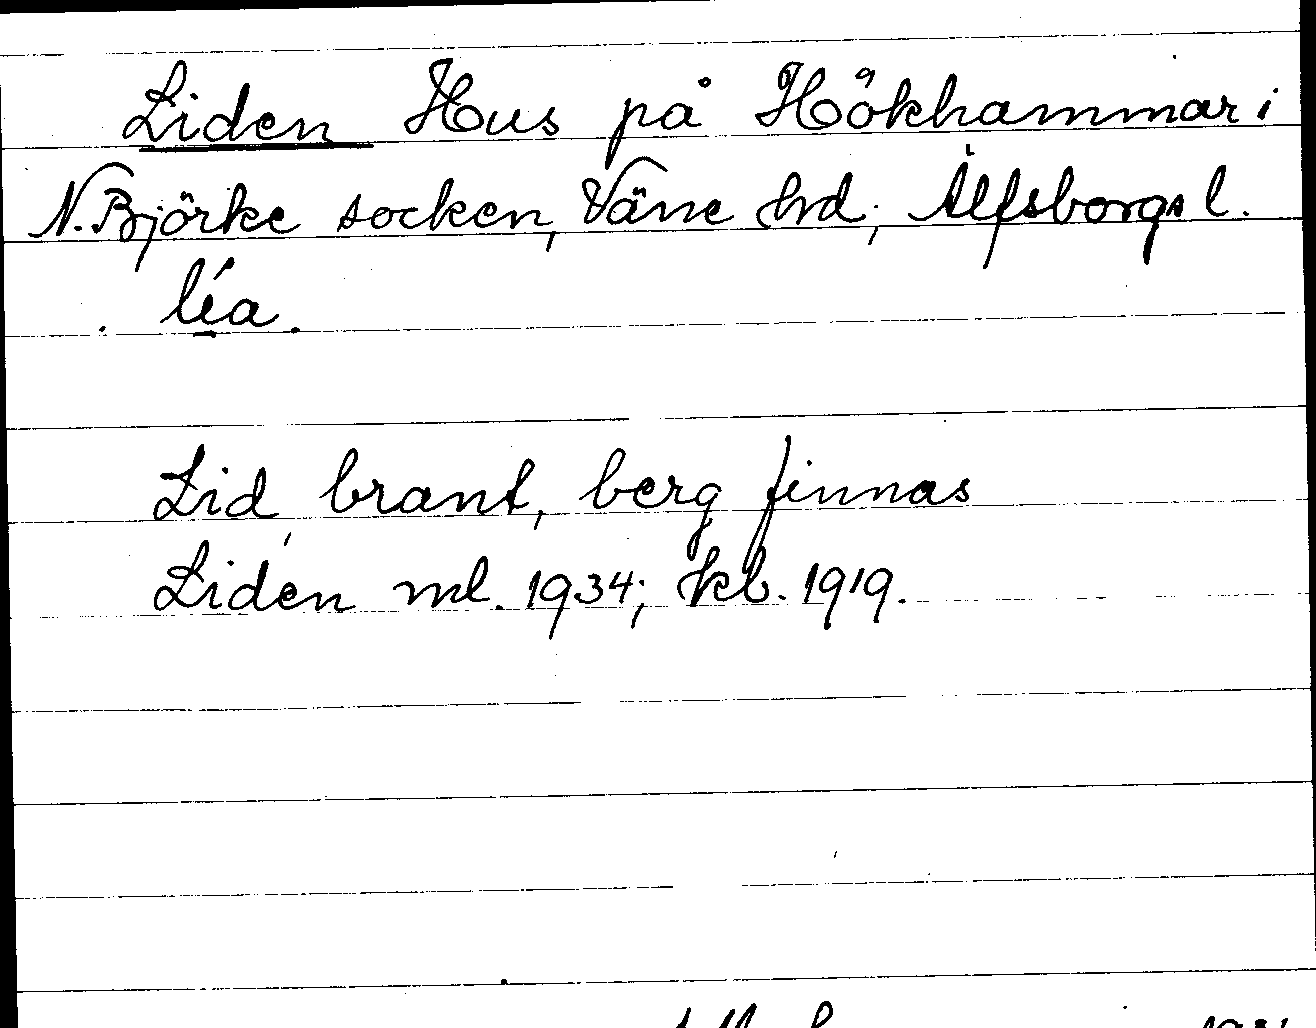 Liden Hus på Hökhammar i
N. Björke socken, Väne hd, Älfsborgs l.
lía.
Lid, brant, berg finnas
Lidén ml. 1934; kb. 1919.